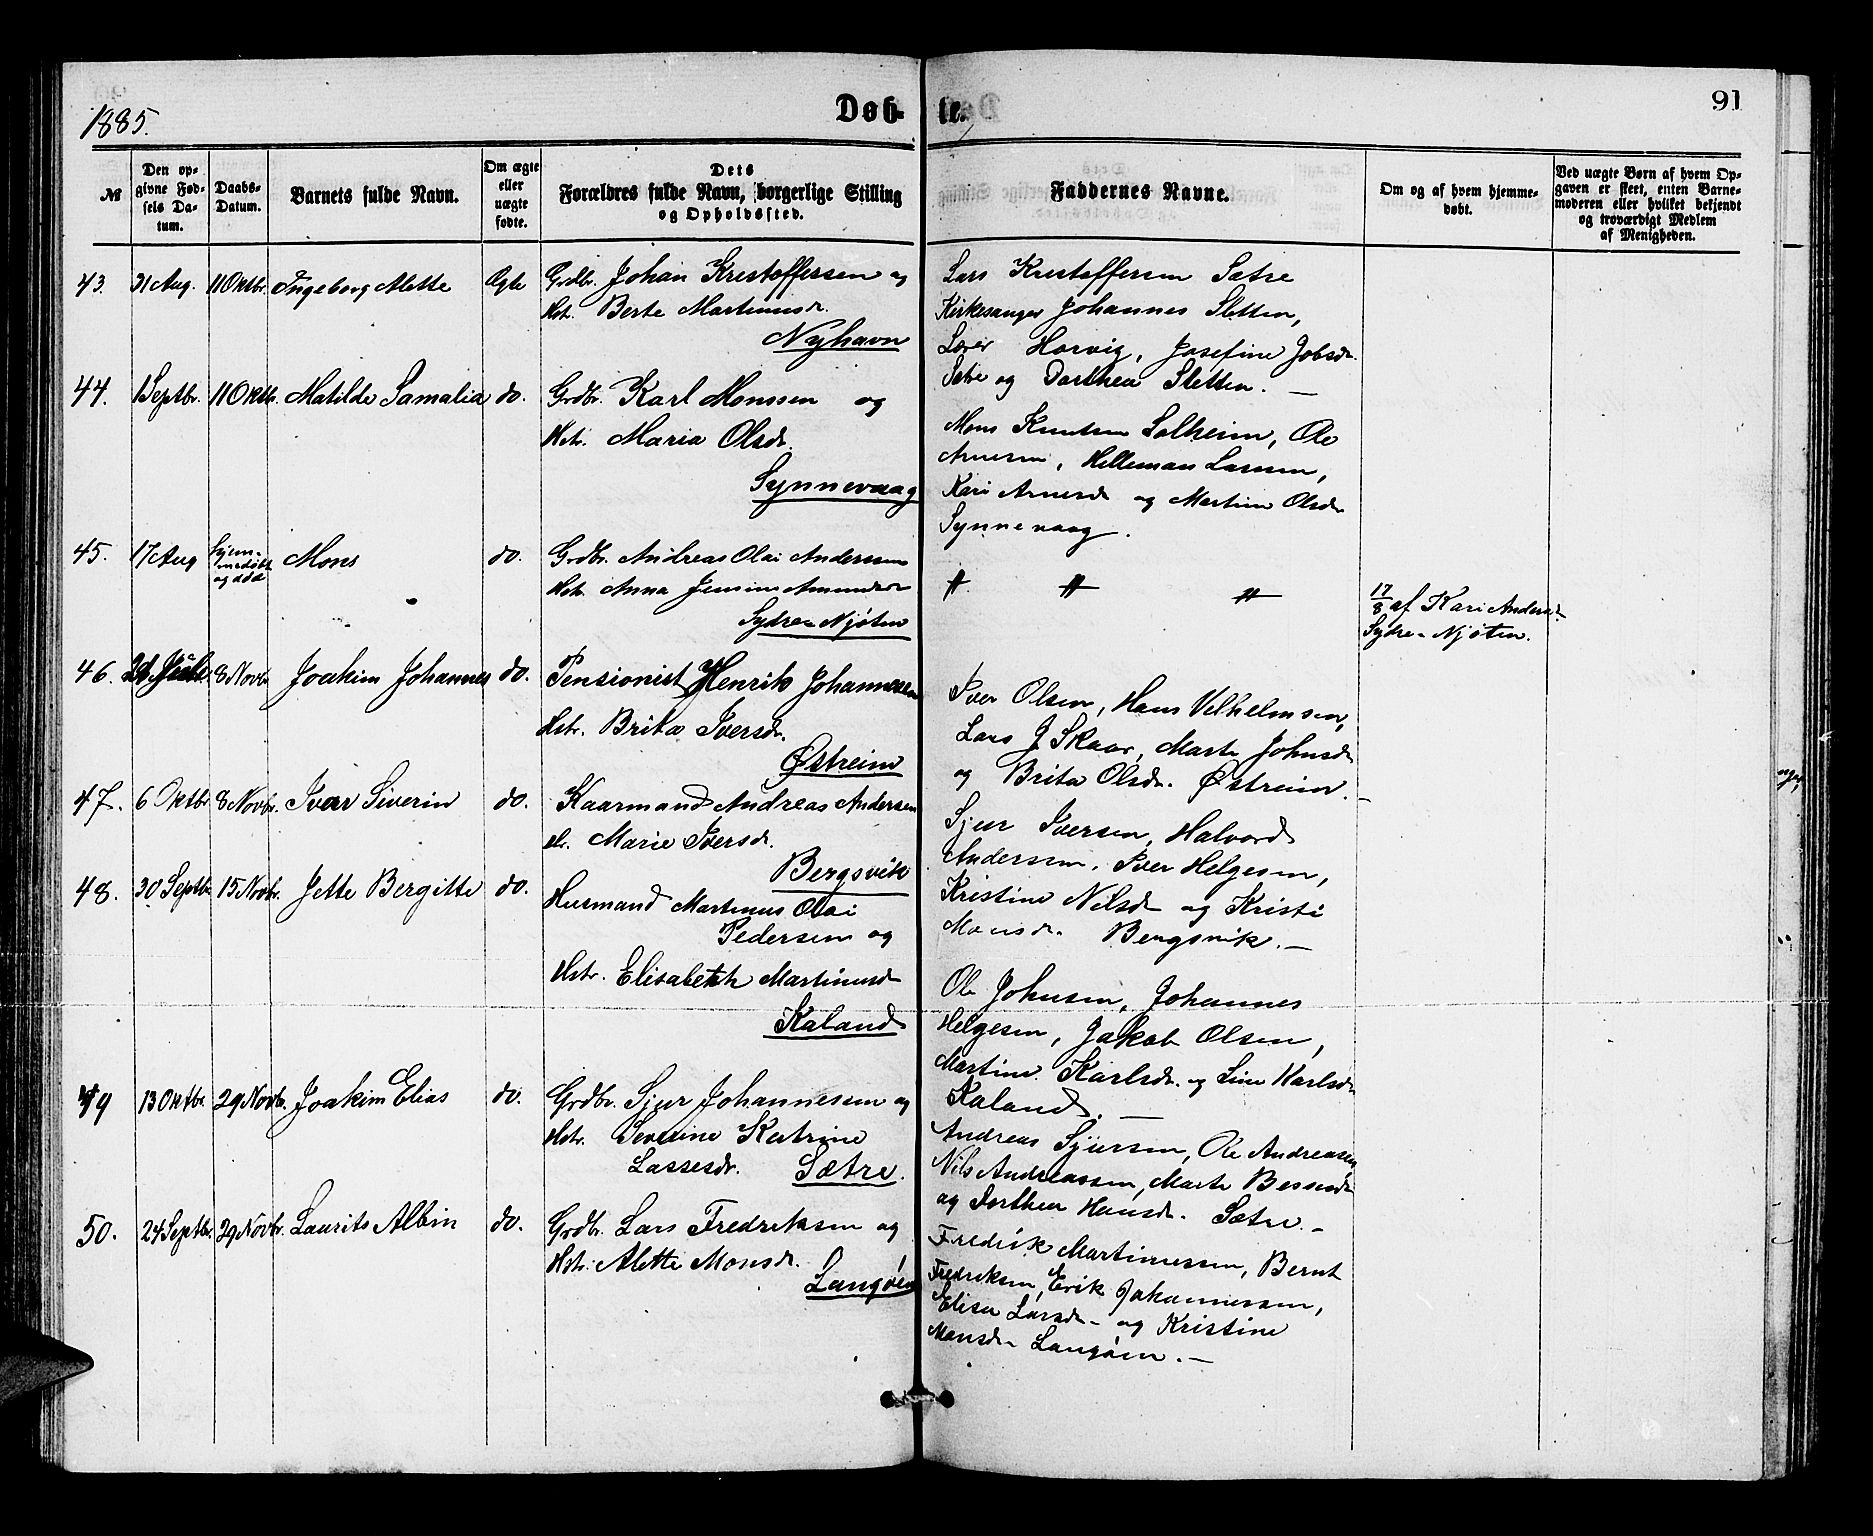 1885.
Døb-
te.
91
№
Den op-
givne Fød-
sels Da-
tum.
Daabs-
Datum.
Barnets fulde Navn.
Om ægte
eller
uægte
fødte.
Dets
Forældres fulde Navn, borgerlige Stilling
og Opholdssted.
Faddernes Navne.
Om og af hvem hjemme-
døbt.
Ved uægte Børn af hvem Op-
gaven er skeet, enten Barne-
moderen eller hvilket bekjendt
og troværdigt Medlem
af Menigheden.
43. 31 Aug. 11 Oktbr. Ingeborg Mette Ægte Grdbr. Johan Krestoffersen og
Hst. Berte Martinusdr.
Nyhavn
Lars Krestoffersen Sætre
Kirkesanger Johannes Sletten,
Lærer Horvig, Josefine Jobsdr.
Sætre og Dorthea Sletten. —
44. 1 Septbr. 11 Oktbr. Matilde Samalia do. Grdbr. Karl Monssen og
Hstr. Maria Olsdr.
Synnevaag
Mons Knutsen Solheim, Ole
Arnesen, Helleman Larssen,
Kari Arnesdr og Martine Olsdr
Synnevaag.
45. 17 Aug hjem-
medøbt
og død Mons do. Grdbr. Andreas Olai Anderssen
Hstr. Anna Jensine Amundsdr
Sydre-Njøten
17/8 af Kari Andersdr.
Sydre-Njøten.
46. 8 Novbr Joakim Johannes do. Pensionist Henrik Johannessen
Hstr. Brita Iversdr.
Østreim
Iver Olsen, Hans Vilhelmsen,
Lars J Skaar, Marte Johnsdr
og Brita Olsdr. Østreim. —
47. 6 Oktbr 8 Novbr. Ivar Siverin do. Kaarmand Andreas Andersen
H. Marie Iversdr.
Bergsvik
Sjur Iversen, Halvord
Anderssen, Iver Helgesen,
Kristine Nilsdr og Kristi
Monsdr. Bergsvik. —
48. 30 Septbr 15 Novbr. Jette Bergitte do. Husmand Martinus Olai
Pedersen og
Hstr. Elisabeth Martinusdr
Kaland
Ole Johnsen, Johannes
Helgesen, Jakob Olsen,
Martine Karlsdr. og Line Karlsdr
Kaland. —
49 13 Oktbr. 29 Novbr. Joakim Elias do. Grdbr. Sjur Johannessen og
Hstr. Severine Katrine
Lassesdr. Sætre.
Andreas Sjursen, Ole Andreasen
Nils Andreassen, Marte Bessesdr
og Dorthea Hansdr. Sætre. —
50. 24 Septbr. 29 Novbr. Laurits Albin do. Grdbr. Lars Fredriksen og
Hstr. Alette Monsdr.
Langøen
Fredrik Martinussen, Bernt
Fredriksen, Erik Johannessen,
Elisa Larsdr - og Kristine
Monsdr Langøen. —